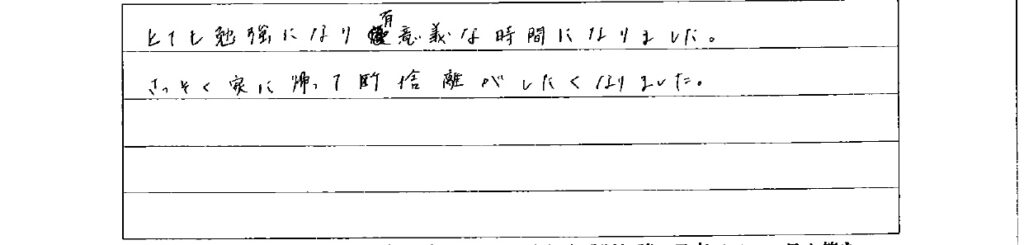 とても勉強になり有意義な時間になりました。
さっそく家に帰って断捨離がしたくなりました。